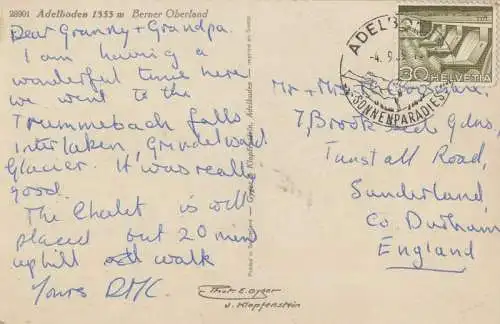 28901 Adelboden 1353 m Berner Oberland
Dear Granny + Grandpa.
I am having a
wonderful time here
we went to the
Trummebach falls
Interlaken, Grindelwald
Glacier. It was really
good.
The Chalet is well
placed but 20 mins
uphill walk
Yours
ADELBODEN
-4.9.5
SONNENPARADIES
30 HELVETIA
Mr + Mrs
7, Brook Gdns,
Tunstall Road,
Sunderland,
Co. Durham
England
Phot. E. Gyger
u. Klopfenstein
Gyger & Klopfenstein, Adelboden
Imprimé en Suisse
Printed in Switzerland